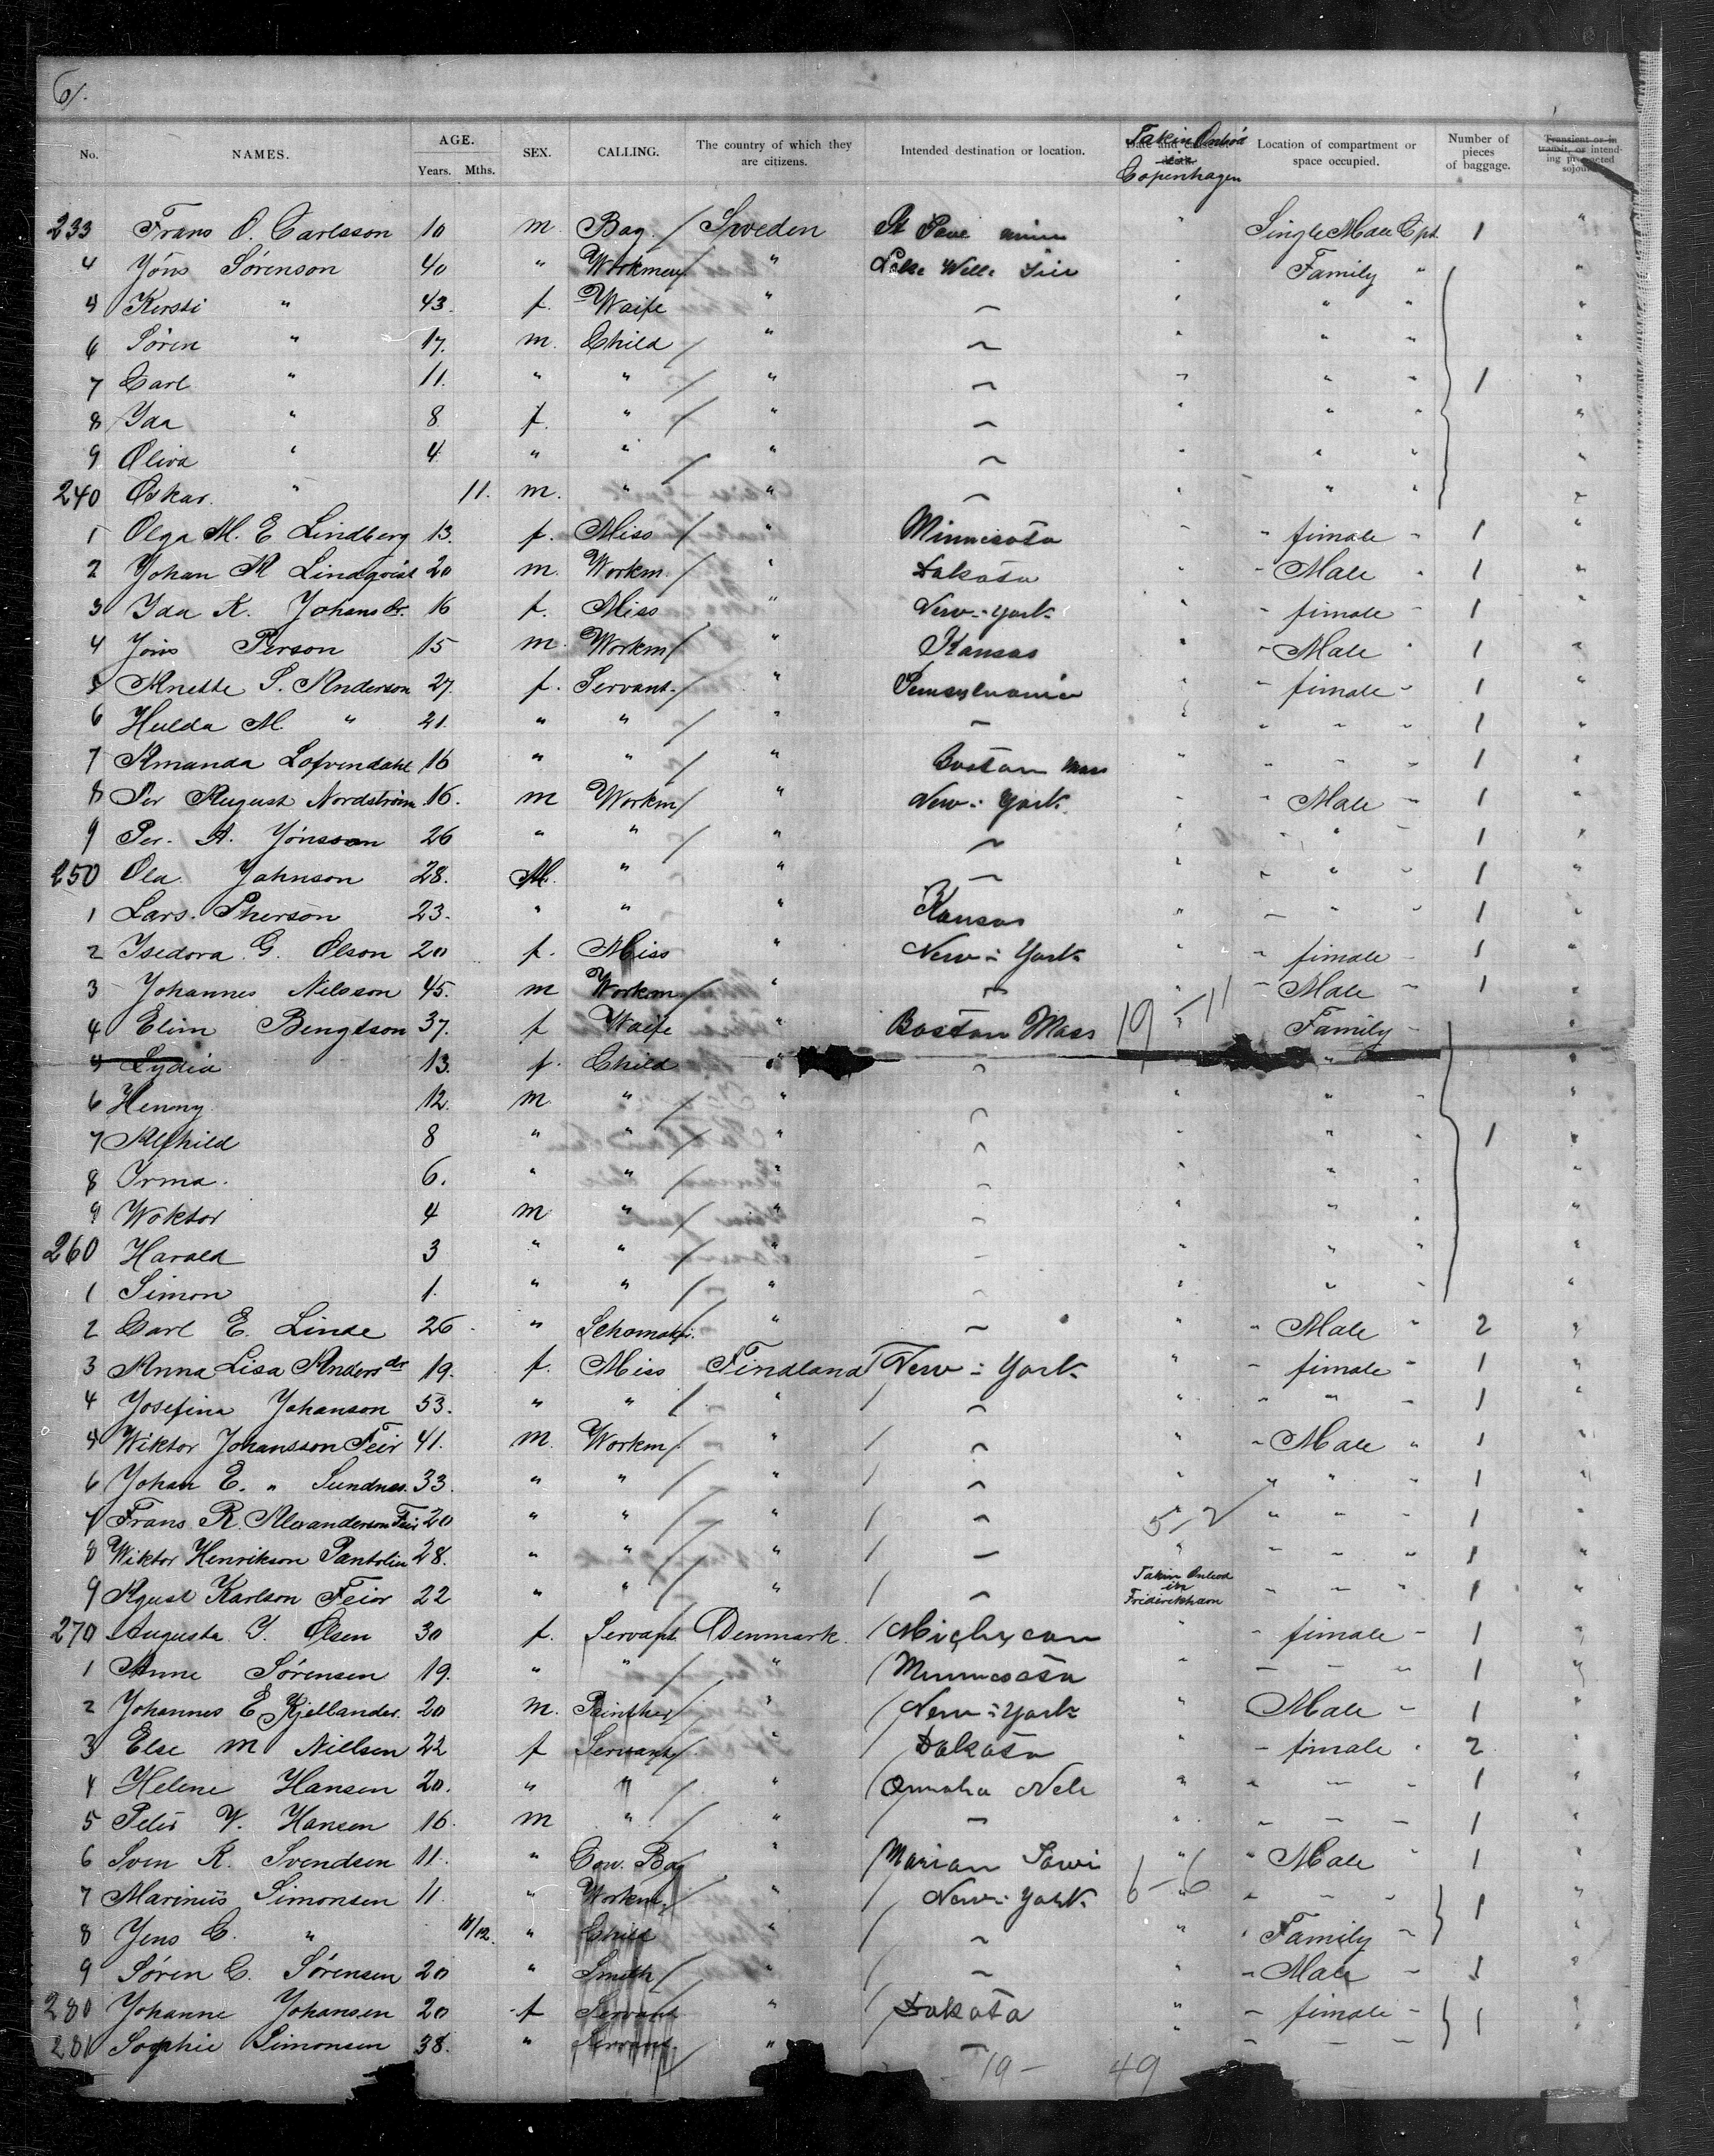 6/.
No. NAMES. AGE. Years. Mths. SEX. CALLING. The country of which they are citizens. Intended destination or location. Taken Onbord in Copenhagen Location of compartment or space occupied. Number of pieces of baggage. Transient or in transit, or intending protracted sojourn.
233 Frans O. Carlsson 10 m. Boy. / Sweden St Paul minn " Single Male Cpt. 1 "
4 Jöns Sörenson 40 " Workmen / " Lake " Family " "
5 Kersti " 43. f. Waife " ~ " " " "
6 Sören " 17. m. Child / " ~ " " " "
7 Carl " 11. " " / " ~ " " " 1 "
8 Ida " 8 f. " / " ~ " " " "
9 Oliva " 4 " " " ~ " " " "
240 Oskar. " 11. m. " / " ~ " " " "
1 Olga M. E Lindberg 13. f. Miss / " Minnesota " " fimale " 1 "
2 Johan A Lindqvist 20 m. Workm. / " Dakota " " Male " 1 "
3 Ida K. Johansdr. 16 f. Miss " New-York " " fimale " 1 "
4 Jöns Person 15 m. Workm / " Kansas " " Male " 1 "
5 Anette S. Anderson 27. f. Servant. / " Pensylvania " " fimale " 1 "
6 Hulda M. " 21. " " / " ~ " " " " 1 "
7 Amanda Lofvendahl 16 " " / " Boston Mass " " " " 1 "
8 Per August Nordström 16. m Workm / " New-York " " Male " 1 "
9 Per. A. Jönsson 26 " " / " ~ " " " " 1 "
250 Ola Johnson 28. M. " " ~ " " " " 1 "
1 Lars. Pherson 23. " " " Kansas " " " " 1 "
2 Isedora G. Olson 20 f. Miss " New-York " " fimale " 1 "
3 Johannes Nilsson 45. m Workm / " ~ " " Male " 1 "
4 Elin Bengtson 37. f Waife " Boston Mass 19-11 " Family " "
5 Lydia 13. f. Child " ~ " "
6 Henny 12. m. " / " ~ " " " "
7 Alfhild 8 " " / " ~ " " " 1 "
8 Irma. 6. " " / " ~ " " " "
9 Woktor 4 m " / " ~ " " " "
260 Harald 3 " " / " ~ " " " "
1 Simon 1. " " / " ~ " " " "
2 Carl E. Linde 26. " Schomaker. / " ~ " " Male " 2 "
3 Anna Lisa Andersdr 19. f. Miss Findland / New-York " " fimale " 1 "
4 Josefina Johanson 53. " " / " / ~ " " " " 1 "
5 Wiktor Johansson Feir 41. m. Workm / " / ~ " " Male " 1 "
6 Johan E. " Sundnas. 33. " " / " / ~ " " " " 1 "
7 Frans R. Alexanderson Feir 20 " " / " / ~ 5-2 " " " 1 "
8 Wiktor Henrikson Pantolin 28. " " / " / ~ " " " " 1 "
9 Agust Karlson Feior 22 " " / " / ~ Taken Onbord in Friderikhavn " " " 1 "
270 Augusta J. Olsen 30 f. Servant Denmark. / Michigan " " fimale " 1 "
1 Anne Sörensen 19. " " / " / Minnesota " " " " 1 "
2 Johannes E Kjellander. 20 m. Painther / " / New-York " Male " 1 "
3 Else M Nillsen 22 f Servant / " / Dakota " " fimale " 2 "
4 Helene Hansen 20. " " / " / Omaha Neb " " " " 1 "
5 Peter V. Hansen 16. m " / " / ~ " " " " 1 "
6 Sven R. Svendsen 11. " Cow. Boy " / Marian Iowi " " Male " 1 "
7 Marinus Simonsen 11. " Workm / " / New-York 6-6 " " " " 1 "
8 Jens C. " 11/12. " Child " / ~ " " Family " "
9 Sören C. Sörensen 20 " Smith / " / ~ " " Male " 1 "
280 Johanne Johansen 20 f Servant " / Dakota " " fimale " 1 "
281 Sophie Simonsen 38. " Servant / " ~ " " " "
19- 49